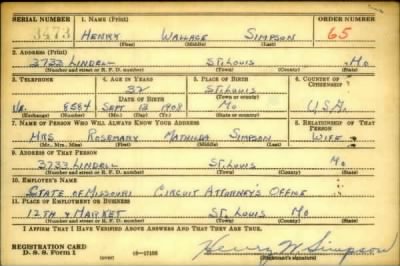 SERIAL NUMBER 1. NAME (Print) ORDER NUMBER
3473 HENRY WALLACE SIMPSON 65
(First) (Middle) (Last)
2. ADDRESS (Print)
3733 LINDELL ST. LOUIS MO
(Number and street or R. F. D. number) (Town) (County) (State)
3. TELEPHONE 4. AGE IN YEARS 5. PLACE OF BIRTH 6. COUNTRY OF CITIZENSHIP
32 ST. LOUIS
DATE OF BIRTH (Town or county)
8584 SEPT 13 1908 MO U.S.A.
(Exchange) (Number) (Mo.) (Day) (Yr.) (State or country)
7. NAME OF PERSON WHO WILL ALWAYS KNOW YOUR ADDRESS 8. RELATIONSHIP OF THAT PERSON
MRS ROSEMARY MATHILDA SIMPSON WIFE
(Mr., Mrs., Miss) (First) (Middle) (Last)
9. ADDRESS OF THAT PERSON
3733 LINDELL ST. LOUIS MO
(Number and street or R. F. D. number) (Town) (County) (State)
10. EMPLOYER'S NAME
STATE OF MISSOURI CIRCUIT ATTORNEY'S OFFICE
11. PLACE OF EMPLOYMENT OR BUSINESS
12TH & MARKET ST. LOUIS MO
(Number and street or R. F. D. number) (Town) (County) (State)
I AFFIRM THAT I HAVE VERIFIED ABOVE ANSWERS AND THAT THEY ARE TRUE.
REGISTRATION CARD
D. S. S. Form 1 (over) Henry W. Simpson
(Registrant's signature)